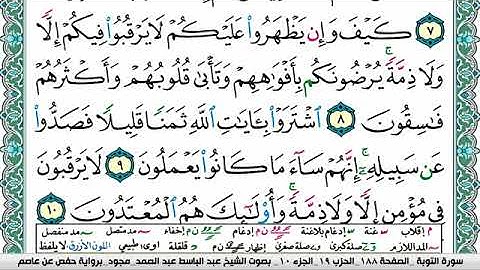 ٧ كَيْفَ وَإِن يَظْهَرُوا۟ عَلَيْكُمْ لَا يَرْقُبُوا۟ فِيكُمْ إِلًّا
وَلَا ذِمَّةً ۚ يُرْضُونَكُم بِأَفْوَٰهِهِمْ وَتَأْبَىٰ قُلُوبُهُمْ وَأَكْثَرُهُمْ
فَـٰسِقُونَ ٨ ٱشْتَرَوْا۟ بِـَٔايَـٰتِ ٱللَّهِ ثَمَنًا قَلِيلًا فَصَدُّوا۟
عَن سَبِيلِهِۦٓ ۚ إِنَّهُمْ سَآءَ مَا كَانُوا۟ يَعْمَلُونَ ٩ لَا يَرْقُبُونَ
فِى مُؤْمِنٍ إِلًّا وَلَا ذِمَّةً ۚ وَأُو۟لَـٰٓئِكَ هُمُ ٱلْمُعْتَدُونَ ١٠
م إقلاب غنة إدغام بلاغنة إدغام إخفاء مد متصل مد منفصل
المد اللازم صلة كبرى صلة صغرى إظهار قلقلة طبيعي اللون الأزرق لا يلفظ
سورة التوبة _ الصفحة ١٨٨ _ الحزب ١٩ _ الجزء ١٠ _ بصوت الشيخ عبد الباسط عبد الصمد_مجود_برواية حفص عن عاصم